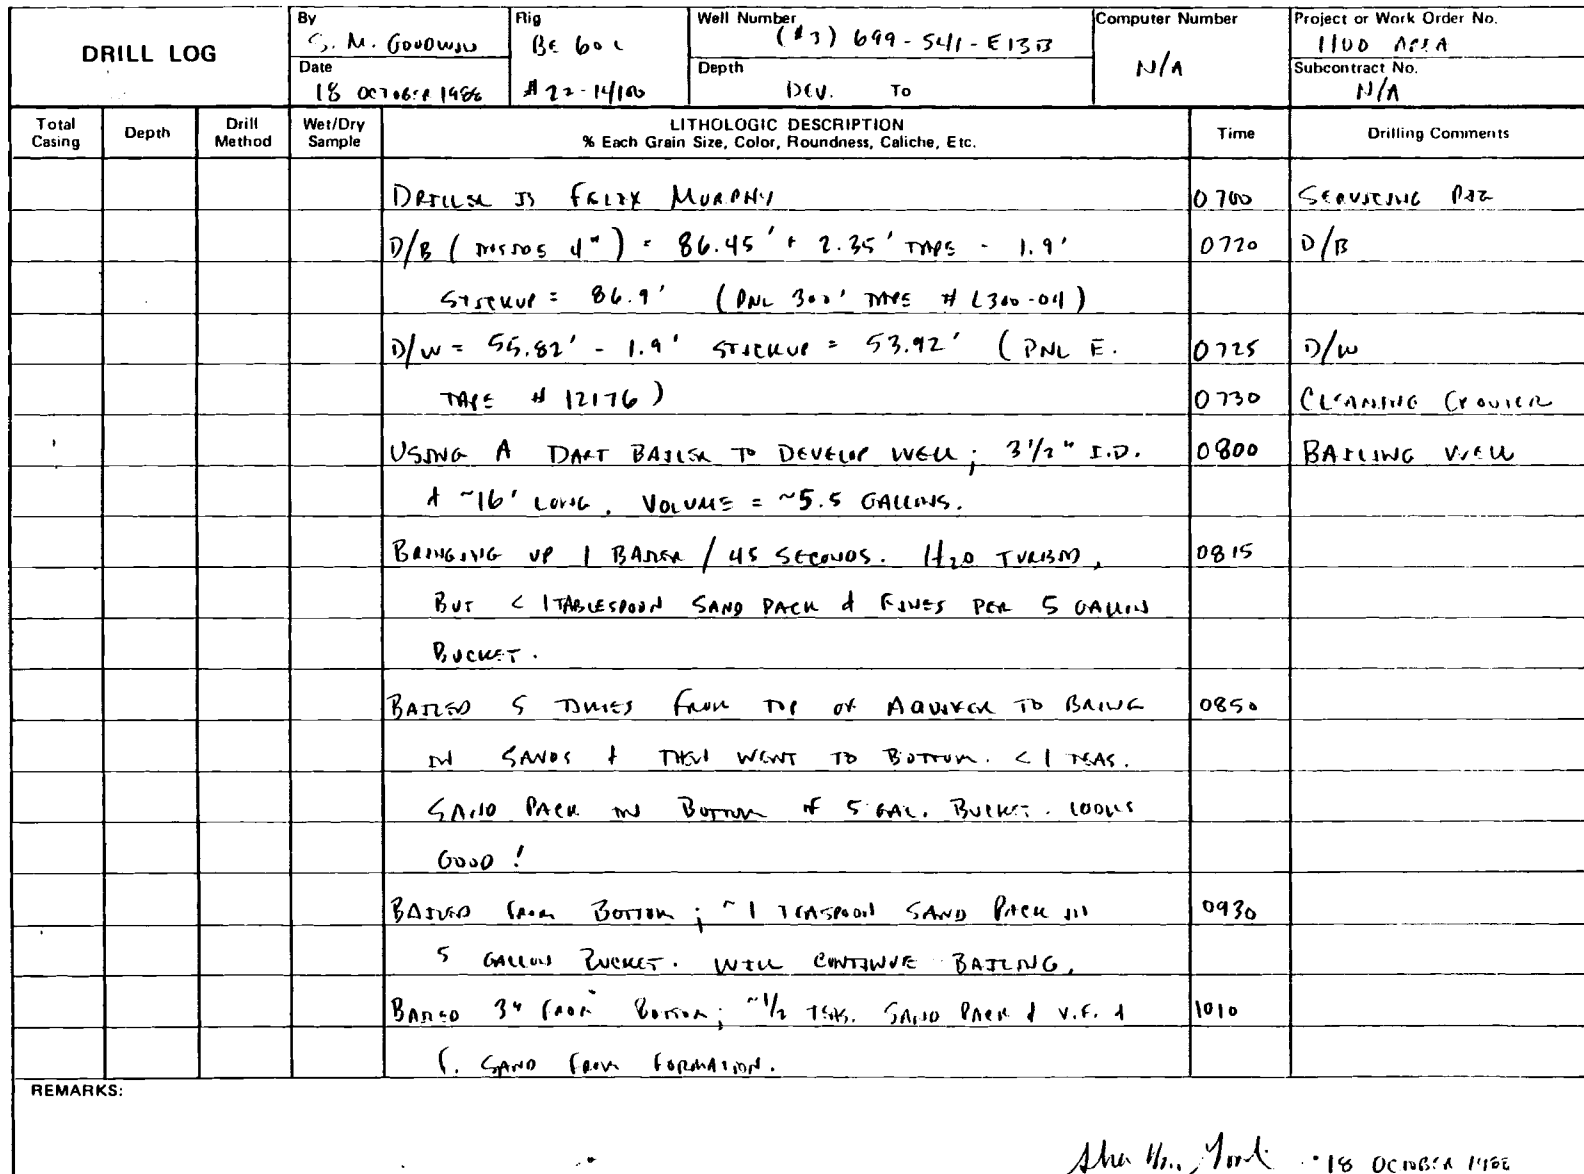 DRILL LOG
By
S. M. GOODWIN
Date
18 OCTOBER 1988
Rig
BE 60 L
# 22-14100
Well Number
(#3) 699-S41-E13B
Depth
DEV. To
Computer Number
N/A
Project or Work Order No.
1100 AREA
Subcontract No.
N/A
Total Casing
Depth
Drill Method
Wet/Dry Sample
LITHOLOGIC DESCRIPTION
% Each Grain Size, Color, Roundness, Caliche, Etc.
Time
Drilling Comments
DRILLER IS FELIX MURPHY 0700 SERVICING RIG
D/B (INSIDE 4") = 86.45' + 2.35' TAPE - 1.9' 0720 D/B
STICKUP = 86.9' (PNL 300' TAPE # L300-04)
D/W = 55.82' - 1.9' STICKUP = 53.92' (PNL E. 0725 D/W
TAPE # 12176) 0730 CLEANING
USING A DART BAILER TO DEVELOP WELL; 3 1/2" I.D. 0800 BAILING WELL
& ~16' LONG. VOLUME = ~5.5 GALLONS.
BRINGING UP 1 BAILER / 45 SECONDS. H2O TURBID, 0815
BUT < 1 TABLESPOON SAND PACK & FINES PER 5 GALLON
BUCKET.
BAILED 5 TIMES FROM TOP OF AQUIFER TO BRING 0850
IN SANDS & THEN WENT TO BOTTOM. < 1 TEAS.
SAND PACK IN BOTTOM OF 5 GAL. BUCKET. LOOKS
GOOD!
BAILED FROM BOTTOM; ~1 TEASPOON SAND PACK IN 0930
5 GALLON BUCKET. WILL CONTINUE BAILING.
BAILED 3" FROM BOTTOM; ~1/2 SAND PACK & V.F. & 1010
F. SAND FROM FORMATION.
REMARKS:
18 OCTOBER 1988